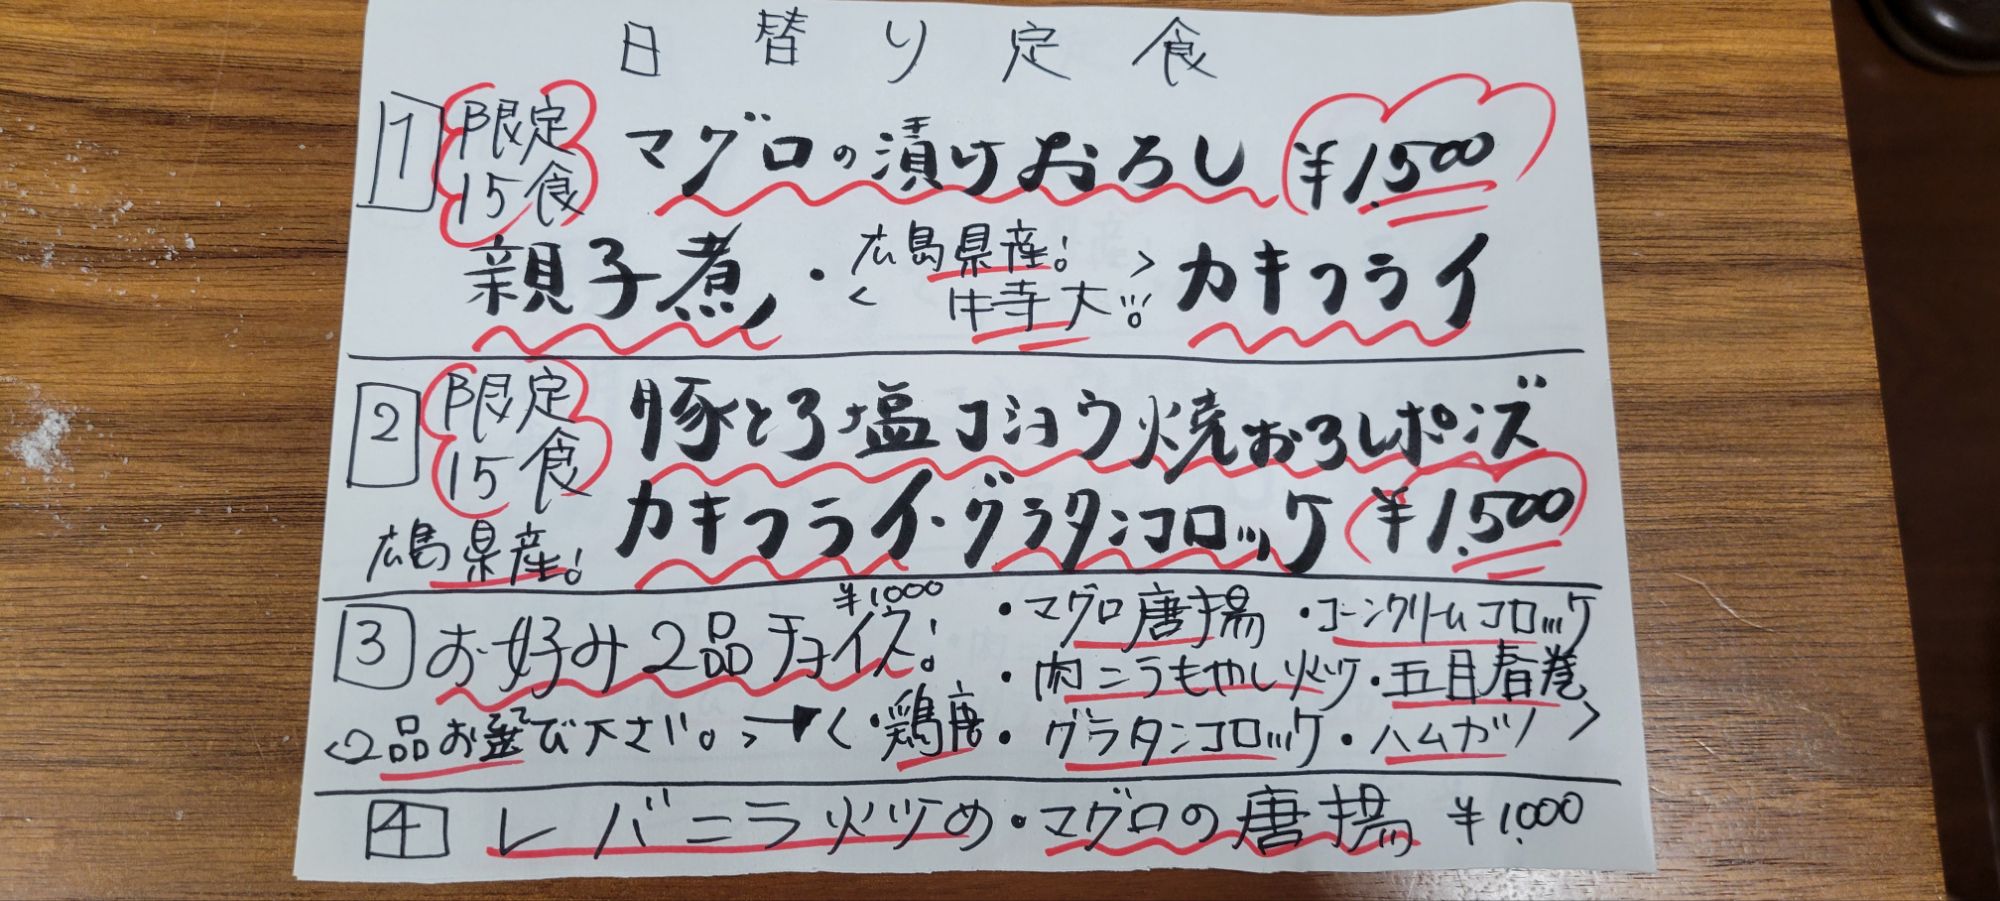 日替り定食
1 限定15食 マグロの漬けおろし ¥1.500
親子煮・<広島県産! 特大!!!> カキフライ
2 限定15食 豚とろ塩コショウ焼おろしポンズ
広島県産! カキフライ・グラタンコロッケ ¥1.500
3 お好み2品チョイス! ¥1000
<2品お選び下さい。>→
<・鶏唐・マグロ唐揚・コーンクリームコロッケ
・肉ニラもやし炒・五目春巻
・グラタンコロッケ・ハムカツ>
4 レバニラ炒め・マグロの唐揚 ¥1.000